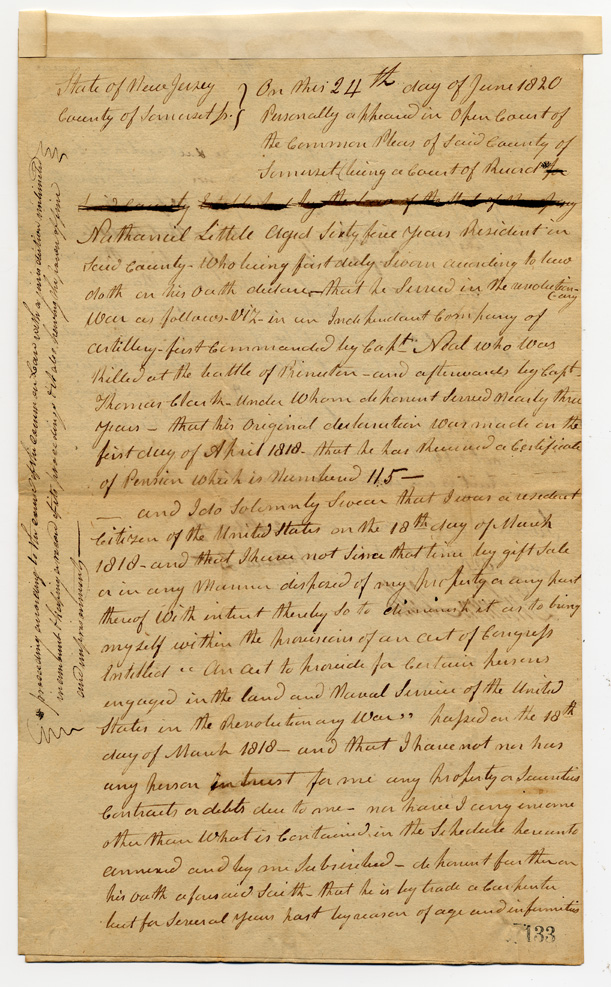 State of New Jersey
County of Somerset ss.
On this 24th day of June 1820
Personally appeared in Open Court of
the Common Pleas of Said County of
Somerset (being a Court of Record *
Nathaniel Little Aged Sixty five Years Resident in
Said County - Who being first duly Sworn according to law
doth on his Oath declare - that he Served in the revolution-
ary
War as follows - Viz - in an Independant Company of
artillery - first Commanded by Capt. Neal who was
Killed at the battle of Princeton - and afterwards by Capt.
Thomas Clark - Under Whom deponent Served nearly three
Years - that his Original declaration was made on the
first day of April 1818 - that he has Received a Certificate
of Pension which is Numbered 115 -
- and I do Solemnly Swear that I was a resident
Citizen of the United States on the 18th day of March
1818 - and that I have not Since that time by gift Sale
or in any Manner disposed of my property or any part
thereof With intent thereby so to diminish it as to bring
myself within the provisions of an act of Congress
Intitled "An act to provide for Certain persons
engaged in the land and Naval Service of the United
States in the Revolutionary War" passed on the 18th
day of March 1818 - and that I have not nor has
any person in trust for me any property or Securities
Contracts or debts due to me - nor have I any income
other than What is Contained in the Schedule hereunto
annexed and by me Subscribed - deponent further on
his oath aforesaid Saith - that he is by trade a Carpenter
but for Several Years past by reason of age and infirmities
* proceeding according to the course of the common Law with a jurisdiction unlimited
in amount & keeping a record of its proceedings
and imprisonment
7133